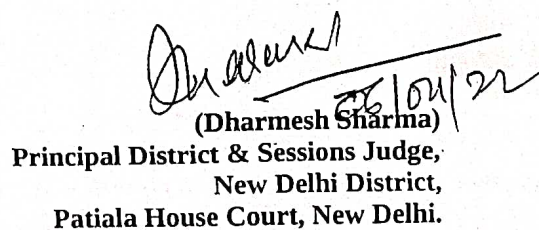 26/04/22
(Dharmesh Sharma)
Principal District & Sessions Judge,
New Delhi District,
Patiala House Court, New Delhi.